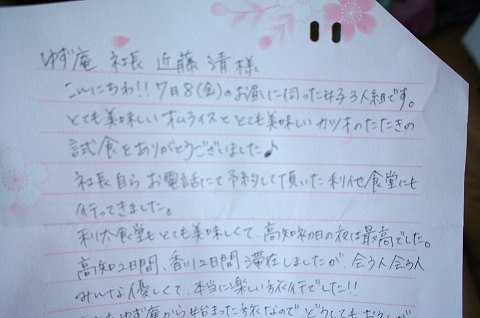 ゆず庵 社長 近藤 清 様
こんにちわ!! 7月8(金)のお昼に伺った女子3人組です。
とても美味しいオムライスととても美味しいカツオのたたきの
試食をありがとうございました♪
社長自らお電話にて予約して頂いた利他食堂にも
行ってきました。
利他食堂もとても美味しくて、高知初日の夜は最高でした。
高知2日間、香川2日間滞在しましたが、会う人会う人
みんな優しくて、本当に楽しい旅行でした!!
ゆず庵から始まった旅なので どうしても